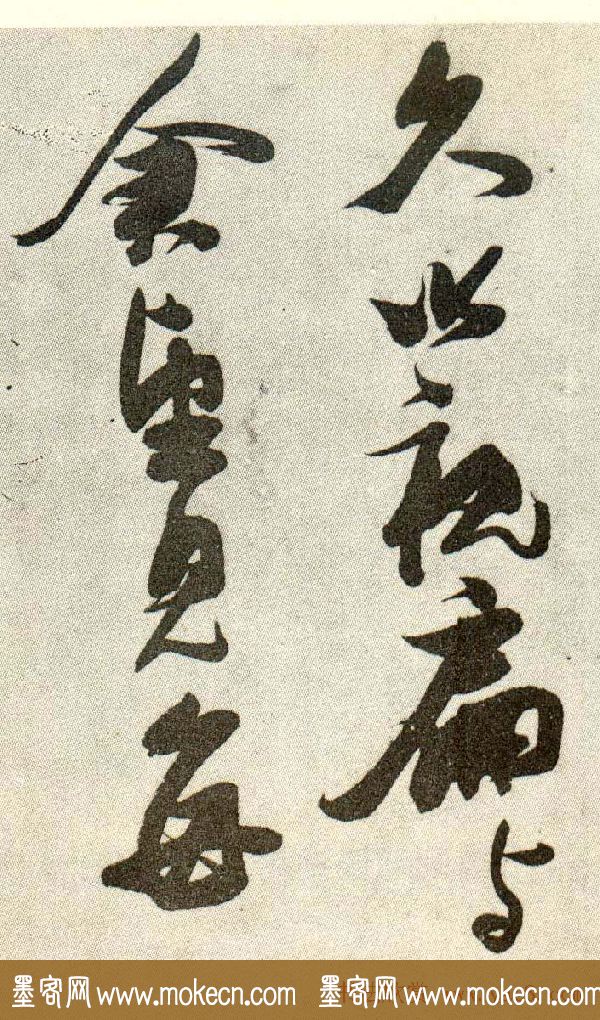 久視扁与
望見每
墨客网www.mokecn.com 墨客网www.mokecn.com